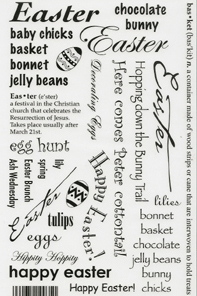 Easter
chocolate
bunny
baby chicks
basket
bonnet
jelly beans
Easter
Decorating Eggs
bas•ket (bus'kit) as a container made of wood strips or cane that are interwoven to hold treats
Eas•ter (e'ster)
a festival in the Christian
church that celebrates the
Resurrection of Jesus.
Takes place usually after
March 21st.
Here comes Peter cottontail
Hopping down the Bunny Trail
Easter
egg hunt
Ash Wednesday
spring
Easter Brunch
lily
Happy Easter!
Easter
tulips
eggs
lilies
bonnet
basket
chocolate
jelly beans
bunny
chicks
Hippity Hoppity
happy easter
Happy Easter!